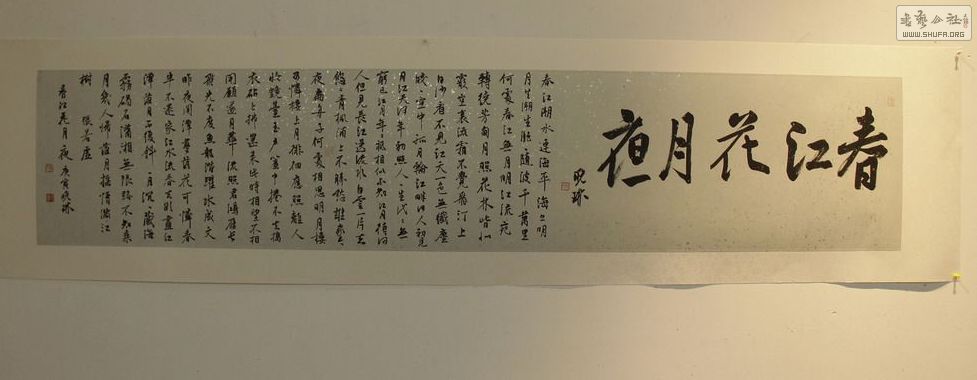 春江花月夜
春江潮水連海平海上明
月共潮生灩灩随波千萬里
何處春江無月明江流宛
轉繞芳甸月照花林皆似
霰空裏流霜不覺飛汀上
白沙看不見江天一色無纖塵
皎皎空中孤月輪江畔何人初見
月江月何年初照人人生代代無
窮已江月年年祇相似不知江月待何
人但見長江送流水白雲一片去
悠悠青楓浦上不勝愁誰家今
夜扁舟子何處相思明月樓
可憐樓上月徘徊應照離人
妝鏡臺玉户簾中捲不去擣
衣砧上拂還來此時相望不相
聞願逐月華流照君鴻雁長
飛光不度魚龍潛躍水成文
昨夜閑潭夢落花可憐春
半不還家江水流春去欲盡江
潭落月復西斜斜月沉沉藏海
霧碣石瀟湘無限路不知乘
月幾人歸落月摇情滿江
樹 張若虛
春江花月夜 庚寅
書藝公社
WWW.SHUFA.ORG